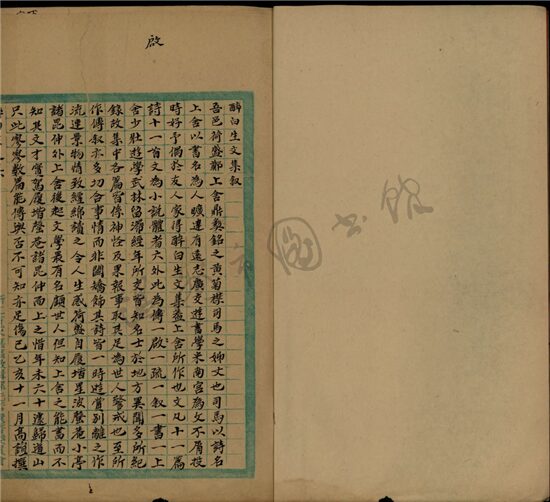 啟
醉白生文集叙
吾邑荷盛鄭上舍鼎奠銘之黄菊襟司馬之姊丈也司馬以詩名
上舍以書名為人曠達有遠志廣交遊書學米南宮為文不屑投
時好予偶於友人家得醉白生文集蓋上舍所作也文凡十一篇
詩十一首文為小說體者六外此為傳一啟一疏一叙一書一上
舍少壯遊學武林留滯經年所交皆知名士於地方異聞多所紀
錄故集中各篇皆係神怪及果報事取其足為世人警戒也至所
作傳叙亦多切合事情而非關嬌飾其詩皆一時遊賞别離之作
流連景物情致纏綿讀之令人生感荷盛自履增星波磬庵小亭
諸昆仲外上舍後起文學最有名顧世人但知上舍之能書而不
知其文才實駕履增磬庵諸昆仲而上之惜年未六十遽歸道山
只此寥寥數篇能傳與否不可知亦足傷已乙亥十一月高誼撰
書館